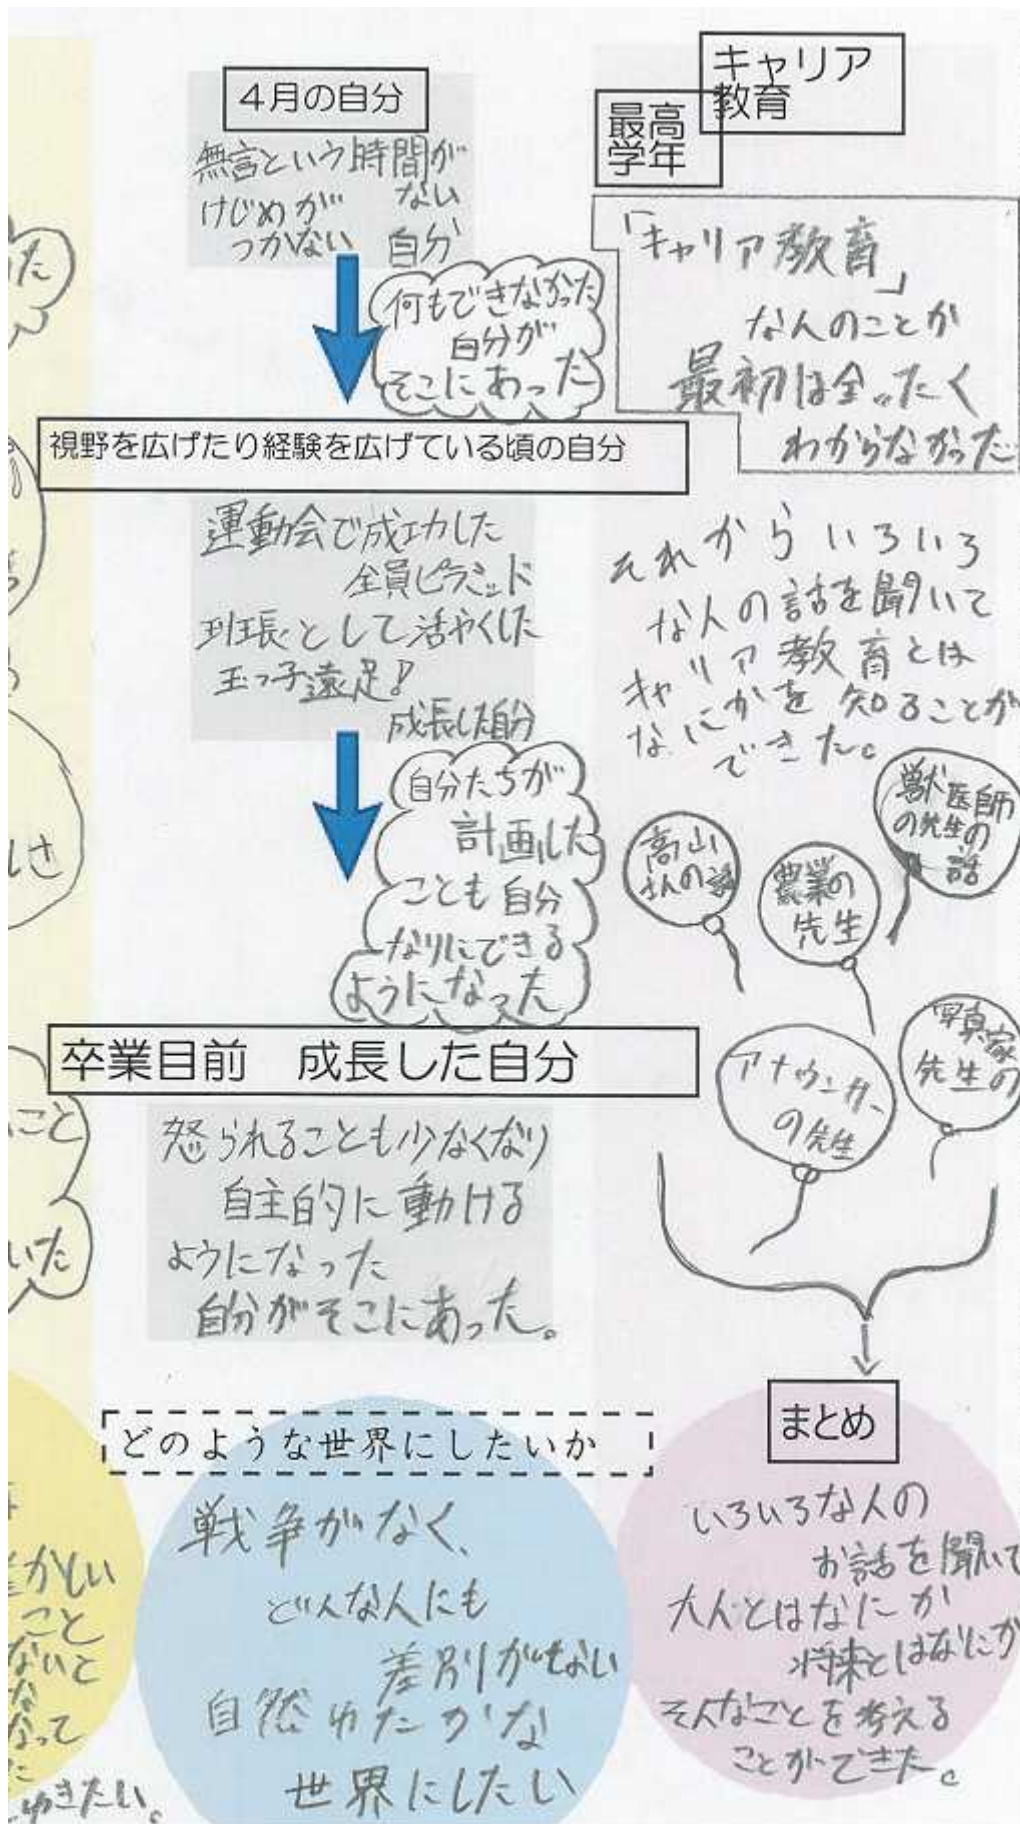 4月の自分
無言という時間が
ない
けじめが
つかない
自分
何もできなかった
自分が
そこにあった
視野を広げたり経験を広げている頃の自分
運動会で成功した
全員ピラミッド
班長として活やくした
玉っ子遠足!
成長した自分
自分たちが
計画した
ことも自分
なりにできる
ようになった
卒業目前 成長した自分
怒られることも少なくなり
自主的に動ける
ようになった
自分がそこにあった。
どのような世界にしたいか
戦争がなく、
どんな人にも
差別がない
自然ゆたかな
世界にしたい
キャリア
教育
最高
学年
「キャリア教育」
なんのことか
最初は全ったく
わからなかった
それからいろいろ
な人の話を聞いて
キャリア教育とは
なにかを知ることが
できた。
獣医師
の先生の
話
高山
さんの話
農業の
先生
写真家
先生の
アナウンサー
の先生
まとめ
いろいろな人の
お話を聞いて
大人とはなにか
将来とはなにか
そんなことを考える
ことができた。
た
こと
いた
かしい
こと
ないと
な
なって
ゆきたい。